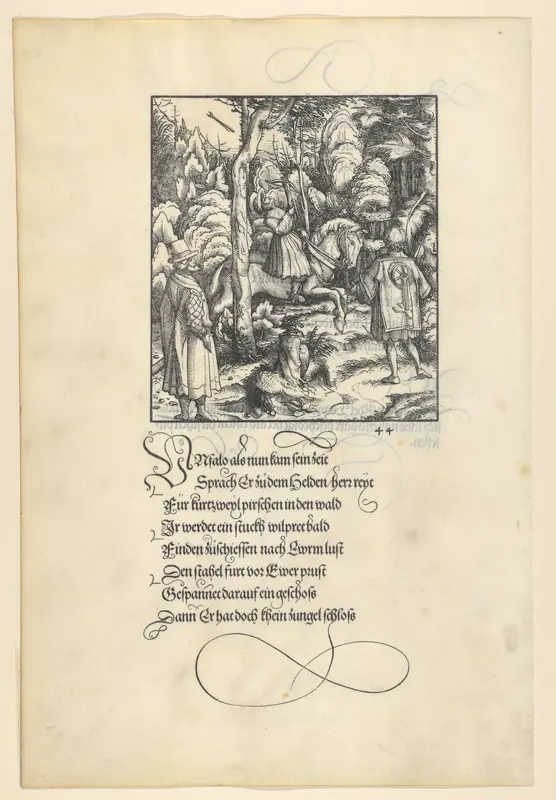 44
VNfalo als nun kam sein zeit
Sprach Er zů dem Helden herr reyt
Für kurtzweyl pirschen in den wald
Ir werdet ein stuckh wilpret bald
Finden zůschiessen nach Ewrm lust
Den stahel furt vor Ewer prust
Gespannet darauf ein geschoss
Dann Er hat doch khein züngel schloss